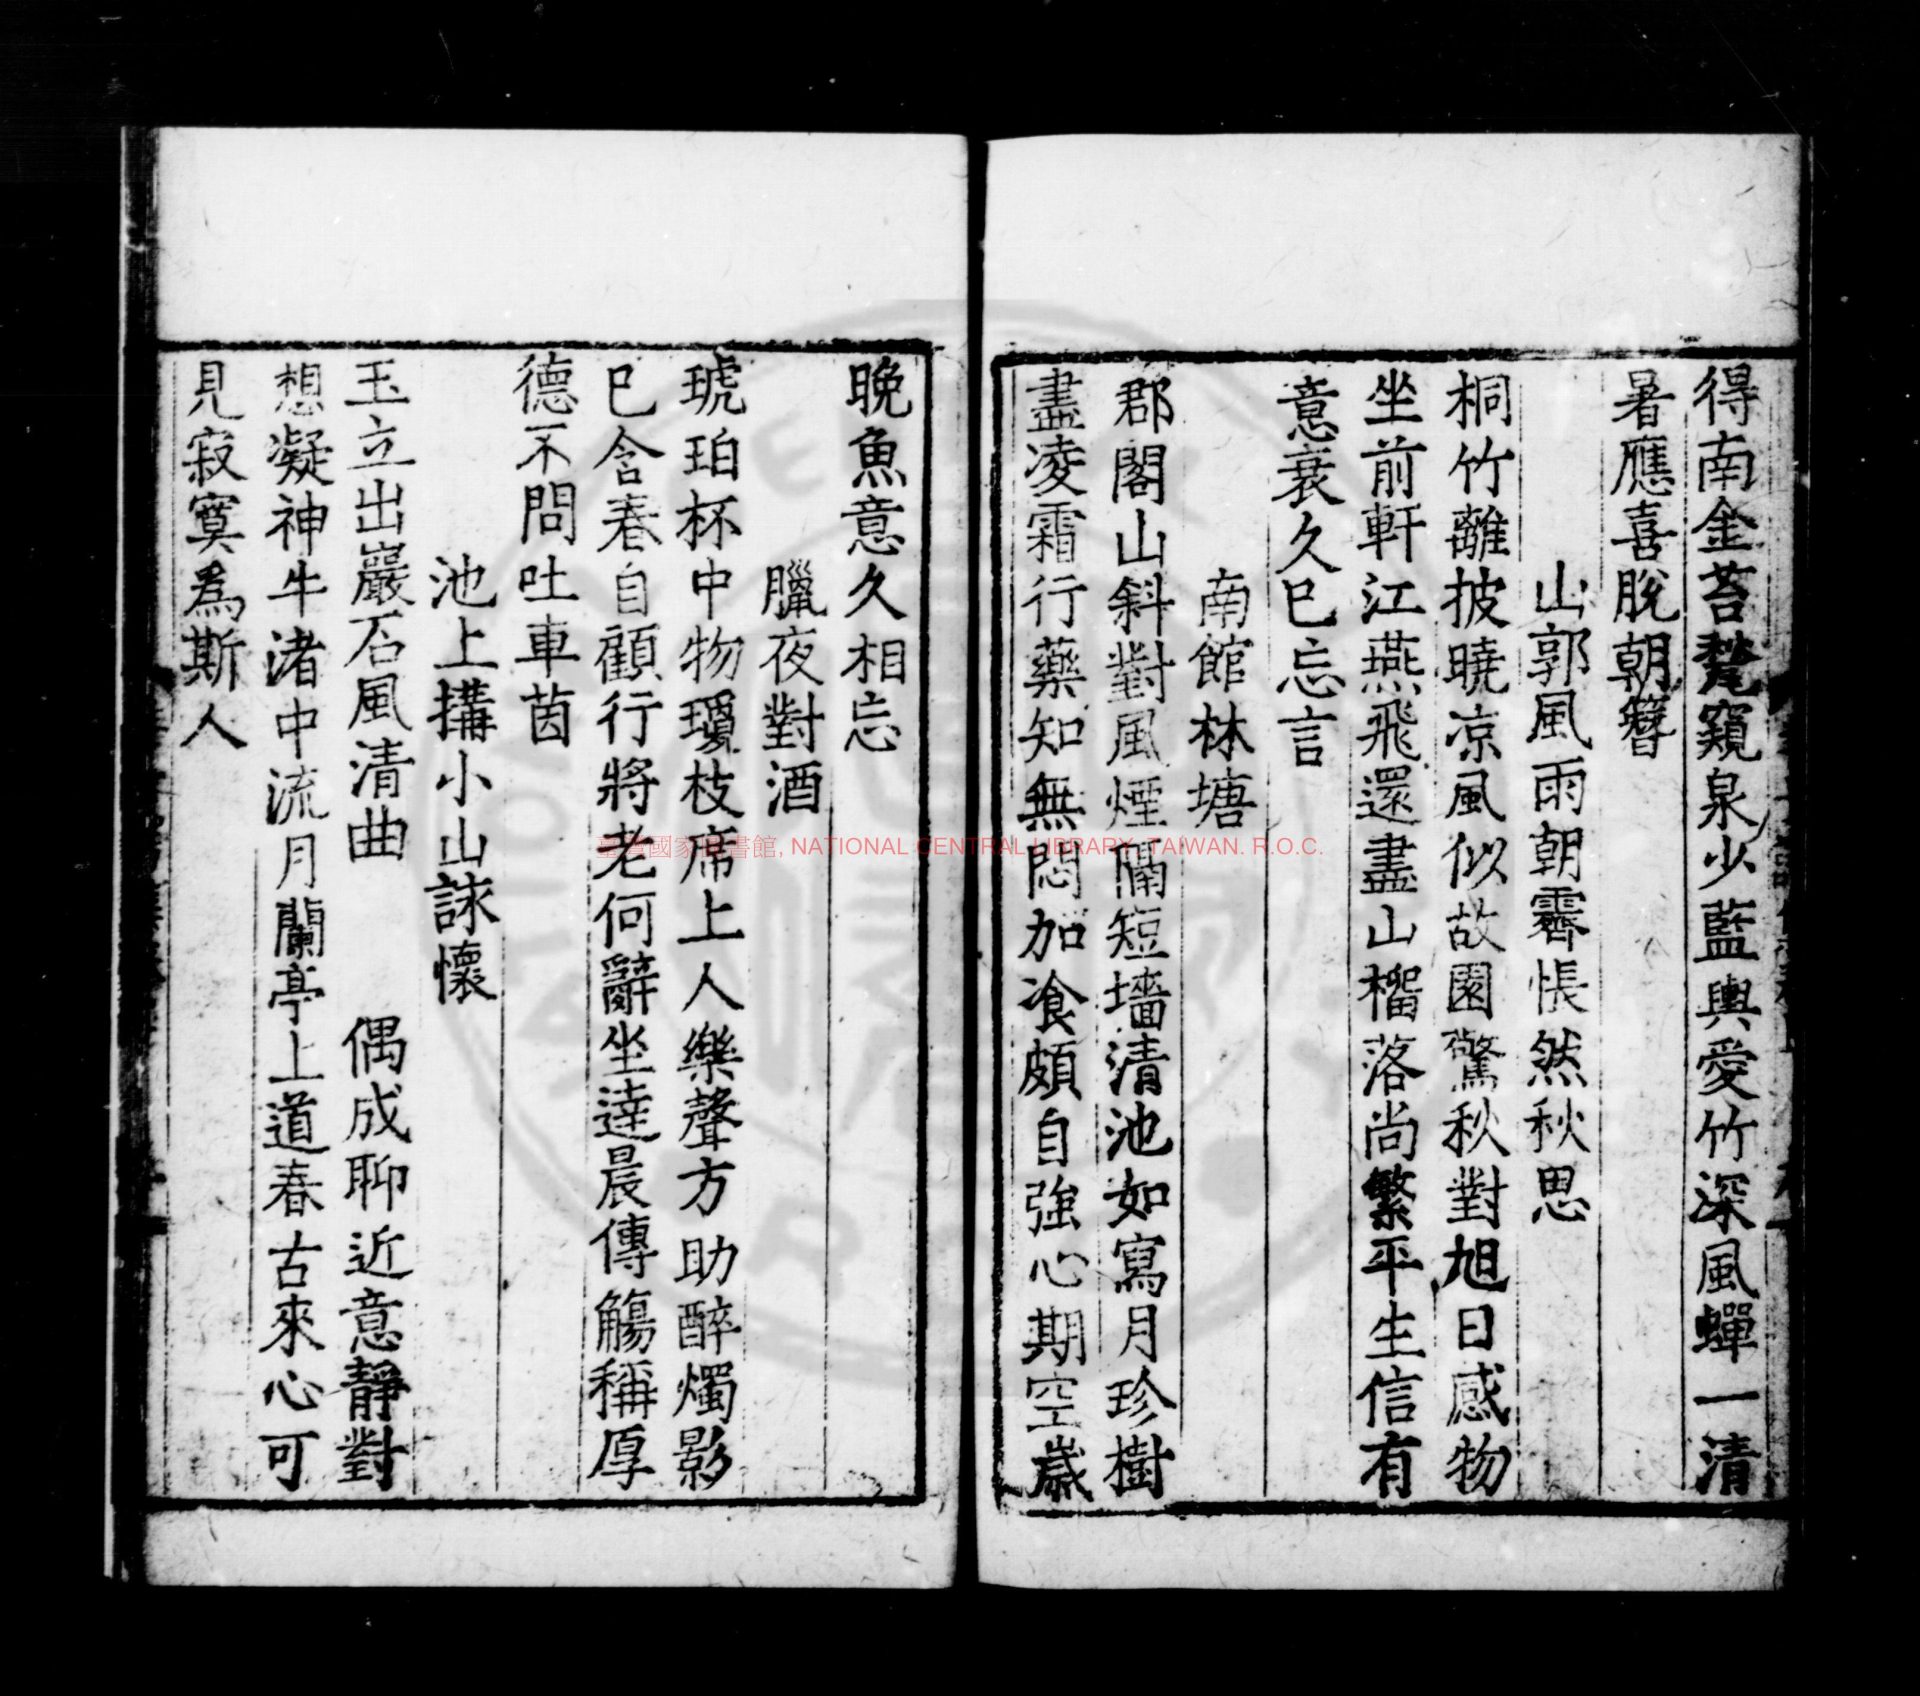 得南金苔甃窺泉少藍輿愛竹深風蟬一清
暑應喜脫朝簪
山郭風雨朝霽悵然秋思
桐竹離披曉凉風似故園驚秋對旭日感物
坐前軒江燕飛還盡山榴落尚繁平生信有
意衰久已忘言
南館林塘
郡閣山斜對風煙隔短墻清池如寫月珍樹
盡凌霜行藥知無悶加飡頗自強心期空歲
晚魚意久相忘
臘夜對酒
琥珀杯中物瓊枝席上人樂聲方助醉燭影
已含春自顧行將老何辭坐達晨傳觴稱厚
德不問吐車茵
池上搆小山詠懷
玉立出巖石風清曲 偶成聊近意靜對
想凝神牛渚中流月蘭亭上道春古來心可
見寂寞為斯人
臺灣國家圖書館, NATIONAL CENTRAL LIBRARY, TAIWAN. R.O.C.